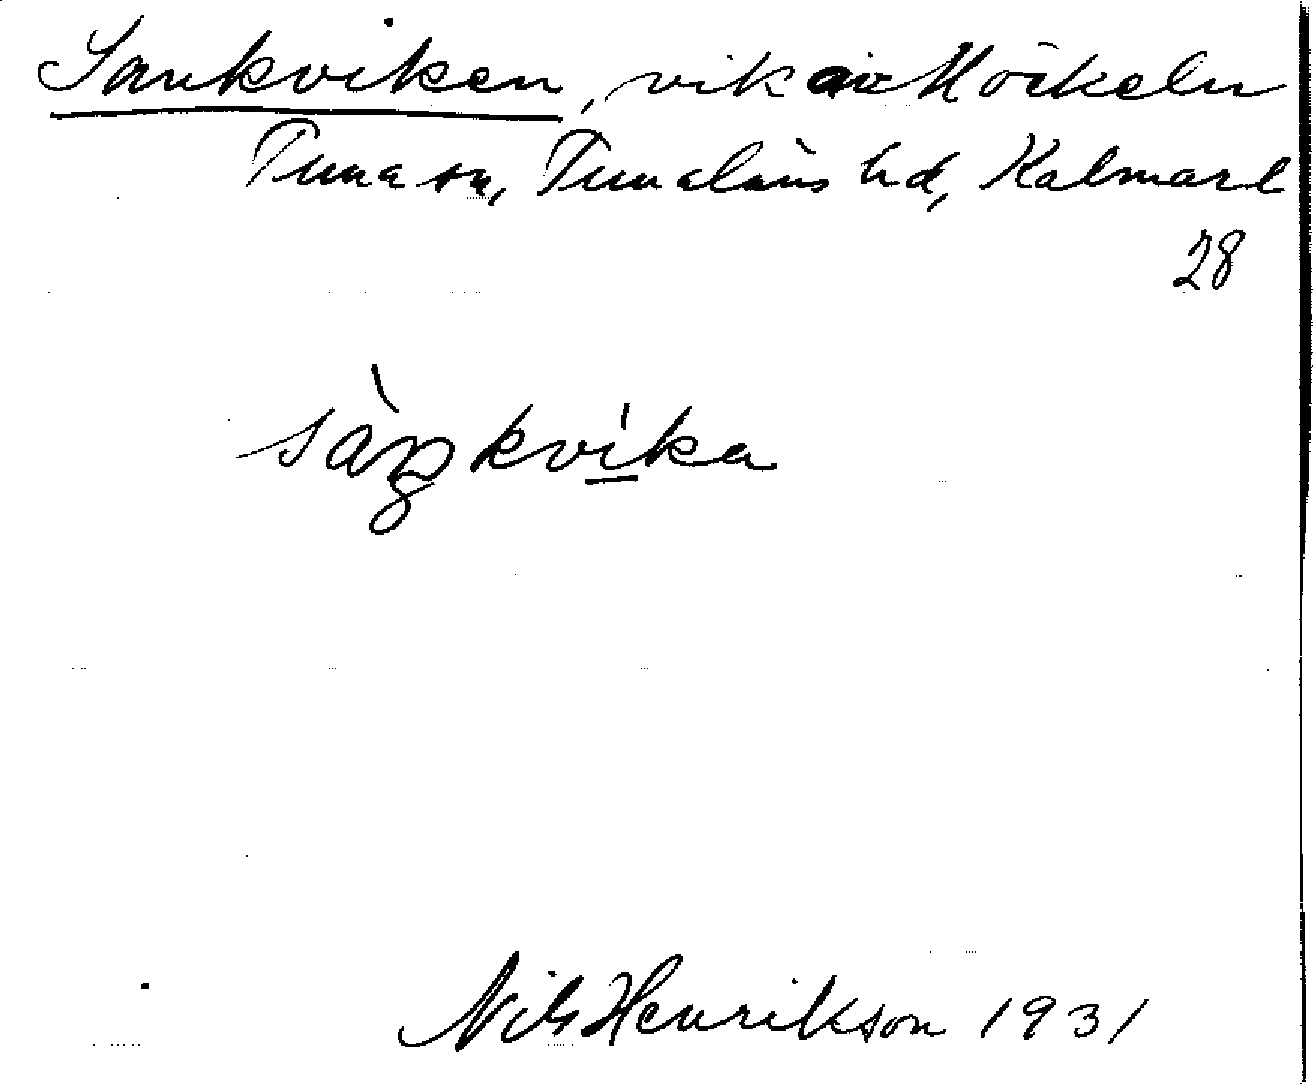 Sankviken, vik av Mörkeln
Tuna sn, Tunaläns hd, Kalmar l
28
sàŋkvi̲ka
Nils Henrikson 1931